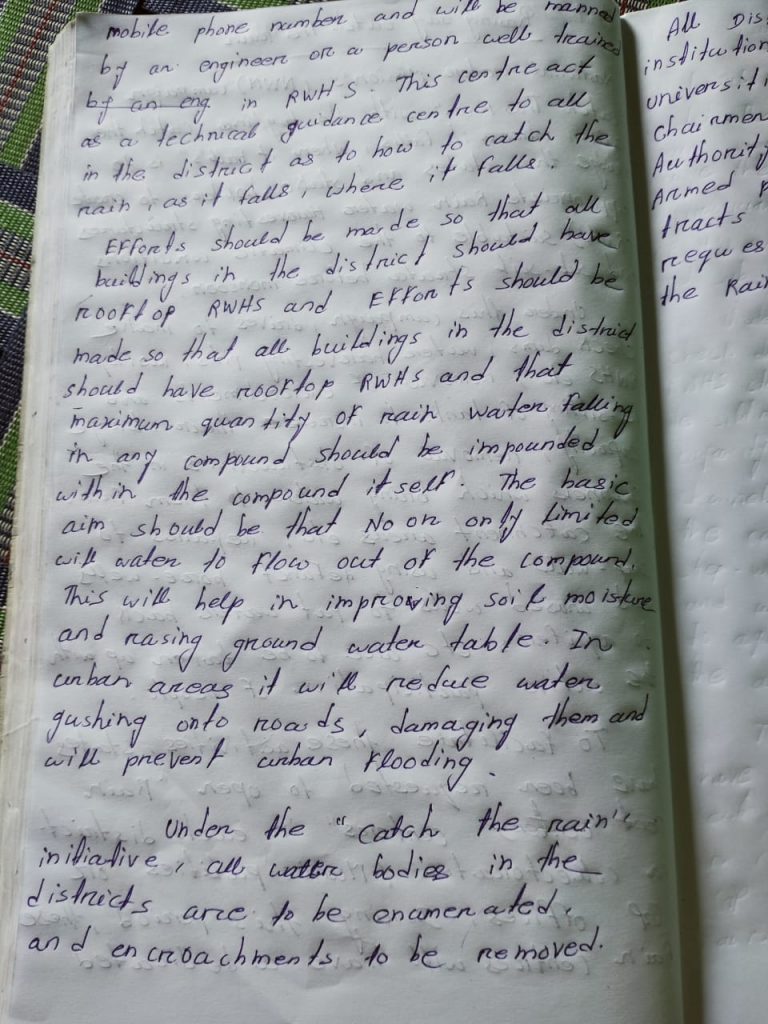 mobile phone number and will be manned
by an engineer or a person well trained
by an eng in RWHS. This centre act
as a technical guidance centre to all
in the district as to how to catch the
rain, as it falls, where it falls.
Efforts should be made so that all
buildings in the district should have
rooftop RWHS and Efforts should be
made so that all buildings in the district
should have rooftop RWHS and that
maximum quantity of rain water falling
in any compound should be impounded
within the compound itself. The basic
aim should be that No or only Limited
will water to flow out of the compound.
This will help in improving soil moisture
and rasing ground water table. In
urban areas it will reduce water
gushing onto roads, damaging them and
will prevent urban flooding.
Under the "catch the rain"
initiative, all water bodies in the
districts are to be enumerated,
and encroachments to be removed.
All Dis
institution
universiti
Chairmen
Authority
Armed F
tracts
reques
the Rain